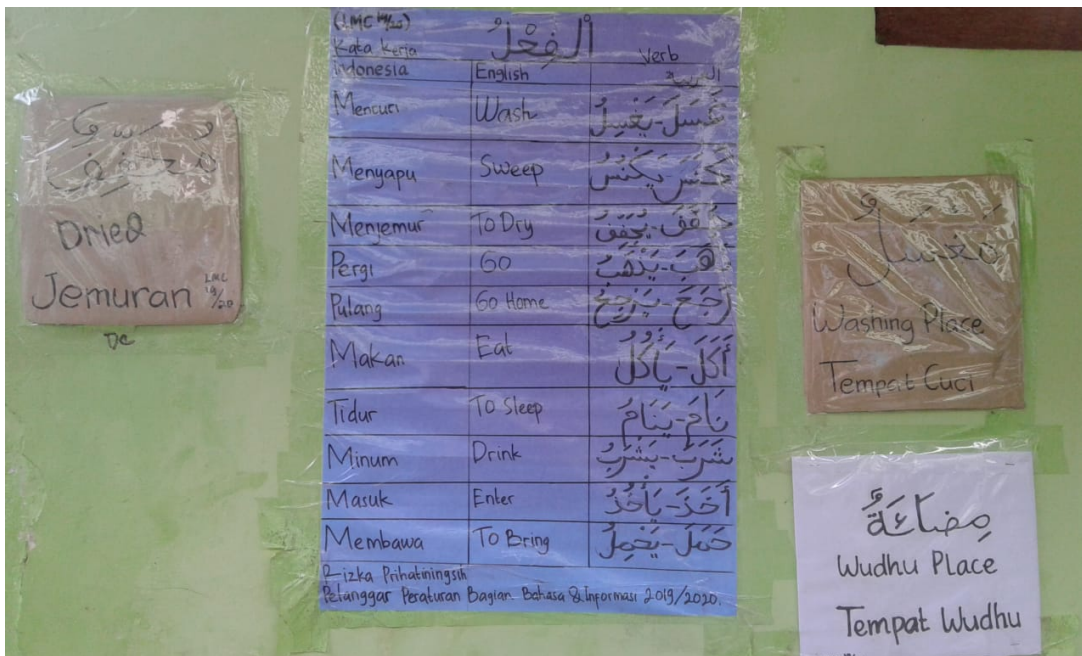 Dried
Jemuran LMC 19/20
DC
(LMC 19/20)
Kata Kerja اَلْفِعْلُ Verb
Indonesia English العربية
Mencuci Wash غَسَلَ-يَغْسِلُ
Menyapu Sweep كَنَسَ-يَكْنُسُ
Menjemur To Dry جَفَّفَ-يُجَفِّفُ
Pergi Go ذَهَبَ-يَذْهَبُ
Pulang Go Home رَجَعَ-يَرْجِعُ
Makan Eat أَكَلَ-يَأْكُلُ
Tidur To Sleep نَامَ-يَنَامُ
Minum Drink شَرِبَ-يَشْرَبُ
Masuk Enter أَخَذَ-يَأْخُذُ
Membawa To Bring حَمَلَ-يَحْمِلُ
Rizka Prihatiningsih
Pelanggar Peraturan Bagian Bahasa & Informasi 2019/2020.
مَغْسَلٌ
Washing Place
Tempat Cuci
مِضَاءَةٌ
Wudhu Place
Tempat Wudhu